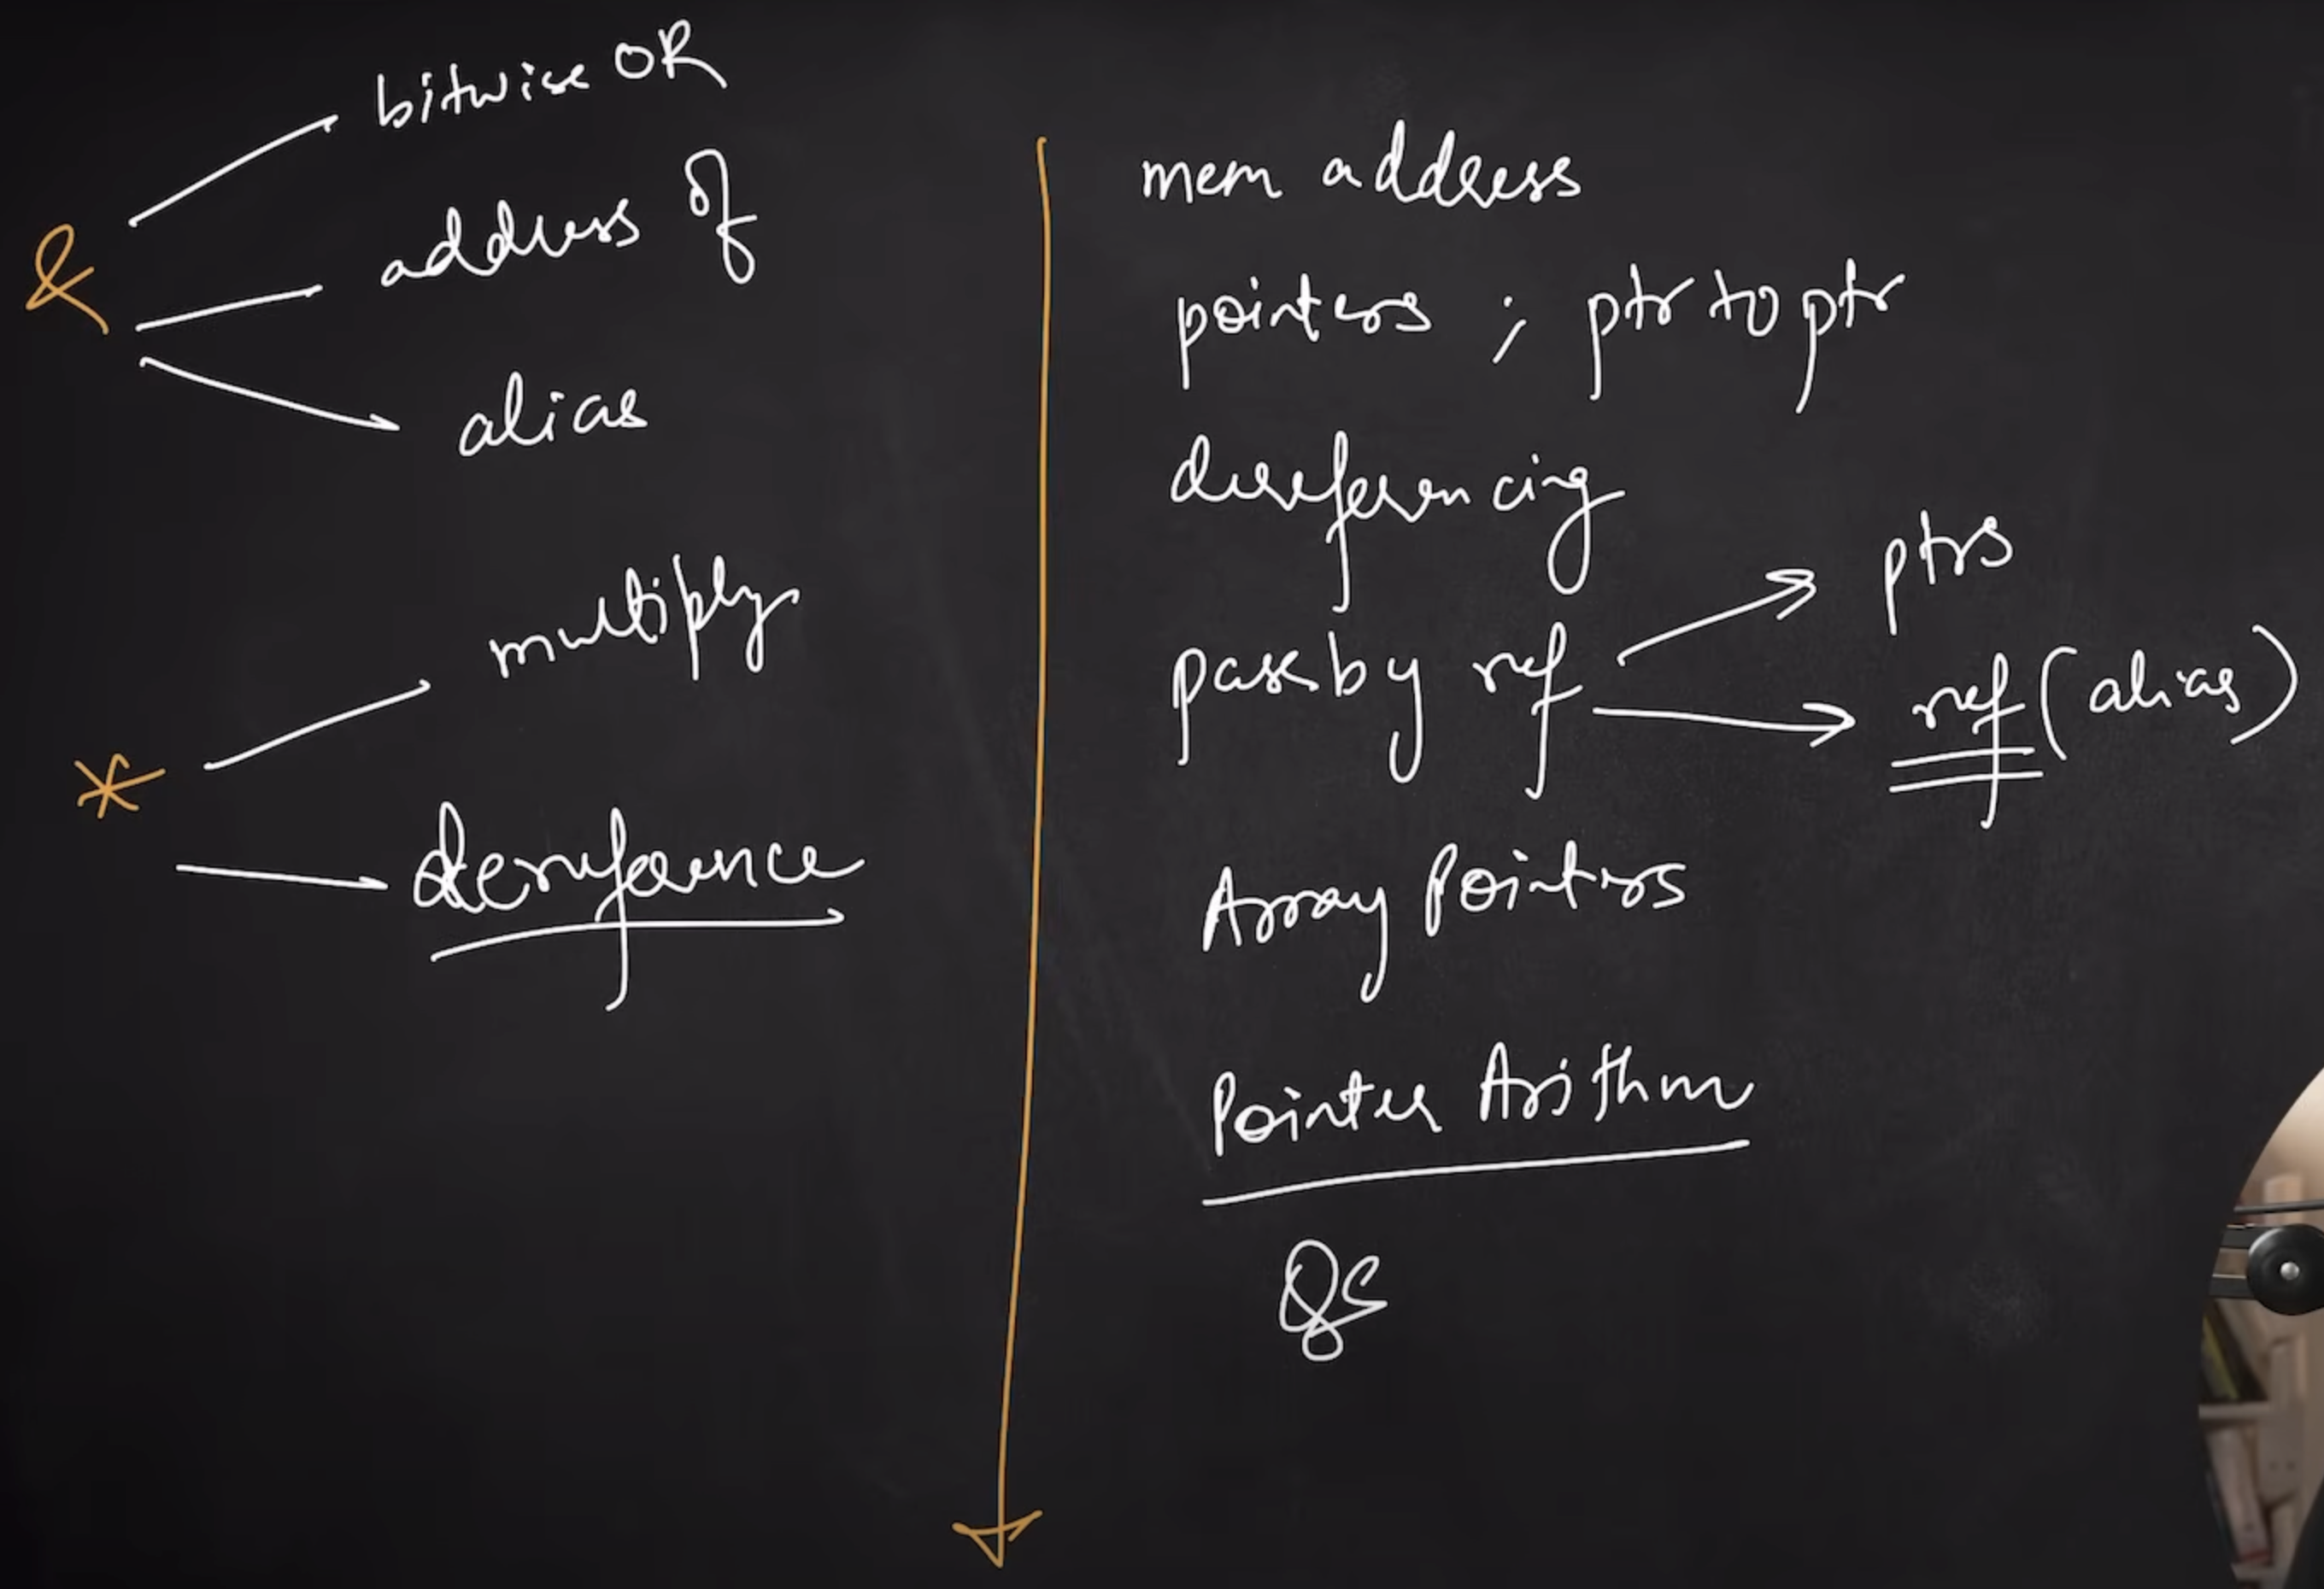 &
bitwise OR
address of
alias
*
multiply
dereference
mem address
pointers ; ptr to ptr
dereferencing
pass by ref
ptrs
ref (alias)
Array Pointers
Pointer Arithm
Qs